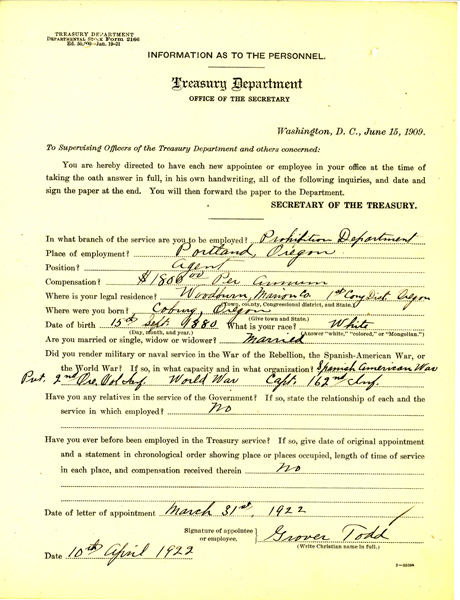 TREASURY DEPARTMENT
DEPARTMENTAL STOCK FORM 2166
Ed. 50,000—Jan. 19-21
INFORMATION AS TO THE PERSONNEL.
Treasury Department
OFFICE OF THE SECRETARY
Washington, D. C., June 15, 1909.
To Supervising Officers of the Treasury Department and others concerned:
You are hereby directed to have each new appointee or employee in your office at the time of
taking the oath answer in full, in his own handwriting, all of the following inquiries, and date and
sign the paper at the end. You will then forward the paper to the Department.
SECRETARY OF THE TREASURY.
In what branch of the service are you to be employed? Prohibition Department
Place of employment? Portland, Oregon
Position? Agent
Compensation? $1800.00 Per Annum
Where is your legal residence? Woodburn, Marion Co. 1st Cong Dist. Oregon
(Town, county, Congressional district, and State.)
Where were you born? Coburg, Oregon
(Give town and State.)
Date of birth 15th Sept. 1880 What is your race? White
(Day, month, and year.) (Answer "white," "colored," or "Mongolian.")
Are you married or single, widow or widower? Married
Did you render military or naval service in the War of the Rebellion, the Spanish-American War, or
the World War? If so, in what capacity and in what organization? Spanish American War
Pvt. 2nd Ore. Vol Inf. World War Capt. 162nd Inf.
Have you any relatives in the service of the Government? If so, state the relationship of each and the
service in which employed? No
Have you ever before been employed in the Treasury service? If so, give date of original appointment
and a statement in chronological order showing place or places occupied, length of time of service
in each place, and compensation received therein No
Date of letter of appointment March 31st, 1922
Signature of appointee
or employee. Grover Todd
(Write Christian name in full.)
Date 10th April 1922